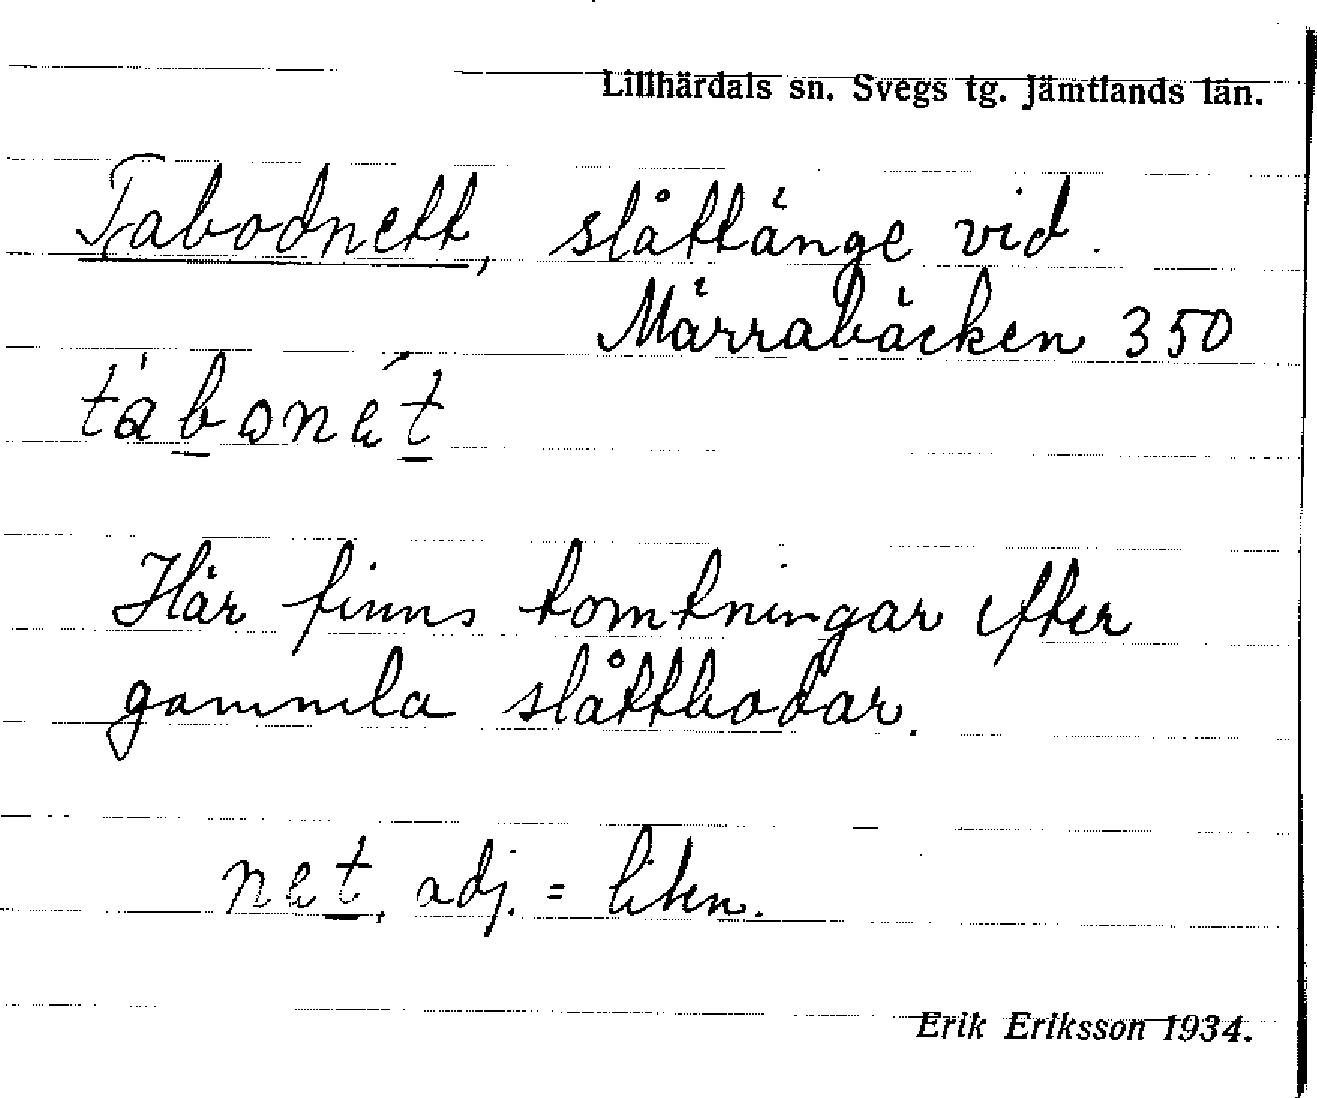 Lillhärdals sn. Svegs tg. Jämtlands län.
Tabodnett, slåttänge vid
Märrabäcken 350
tábonét
Här finns tomtningar efter
gammla slåttbodar.
net, adj. = liten.
Erik Eriksson 1934.